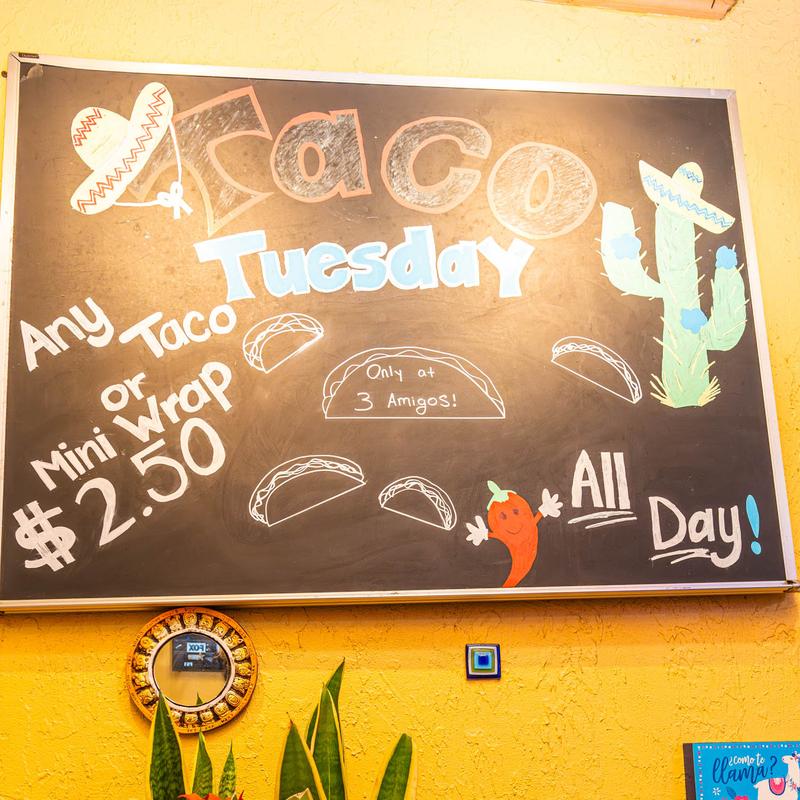 Taco
Tuesday
Any Taco
or
Mini Wrap
$2.50
Only at
3 Amigos!
All
Day!
FOX
¿como te
llama?